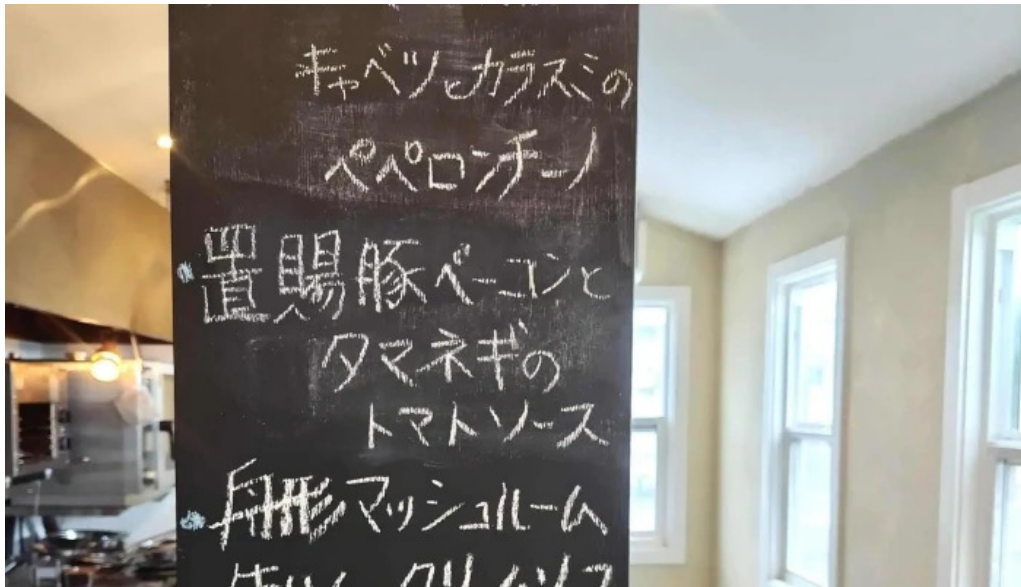 キャベツとカラスミの
ペペロンチーノ
置賜豚ベーコンと
タマネギの
トマトソース
舟形マッシュルーム
クリームソース